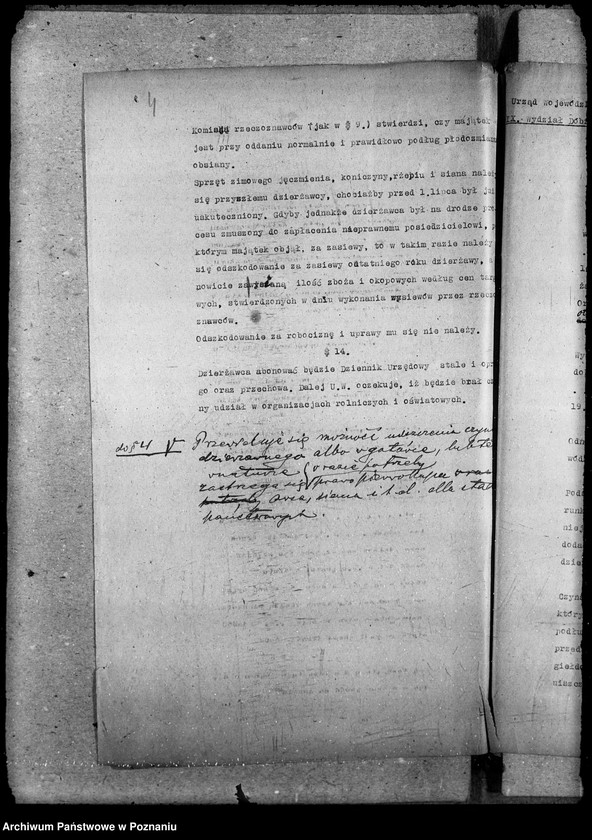 4
Komisja rzeczoznawców (jak w § 9.) stwierdzi, czy majątek
jest przy oddaniu normalnie i prawidłowo podług płodozmianu
obsiany.
Sprzęt zimowego jęczmienia, koniczyny, rzepiu i siana nale
się przyszłemu dzierżawcy, chociażby przed 1.lipca był
uskuteczniony. Gdyby jednakże dzierżawca był na drodze pro
cesu zmuszony do zapłacenia nieprawnemu posiedzicielowi, p
którym majątek objął. za zasiewy, to w takim razie należy
się odszkodowanie za zasiewy ostatniego roku dzierżawy, a
nowicie ilość zboża i okopowych według cen targ
wych, stwierdzonych w dniu wykonania wysiewów przez rzeczo
znawców.
Odszkodowanie za robociznę i uprawy mu się nie należy.
§ 14.
Dzierżawca abonować będzie Dziennik Urzędowy stale i opr
go oraz przechowa. Dalej U.W. oczekuje, iż będzie brał cz
ny udział w organizacjach rolniczych i oświatowych.
do § 4 V Przewiduje się możność uiszczenia czyn
dzierżawnego albo w gotówce, lub też
w naturze (w razie potrzeby
zastrzega się prawo pierwokupu
owsa, siana i t.d. dla
państwowych.
Urząd wojewódz
IX. Wydział Dób
Wy
do
19.
Odn
wódz
Podc
runk
niej
doda
dzie
Czyn
któr
podłu
przed
giełd
niszcz
Archiwum Państwowe w Poznaniu